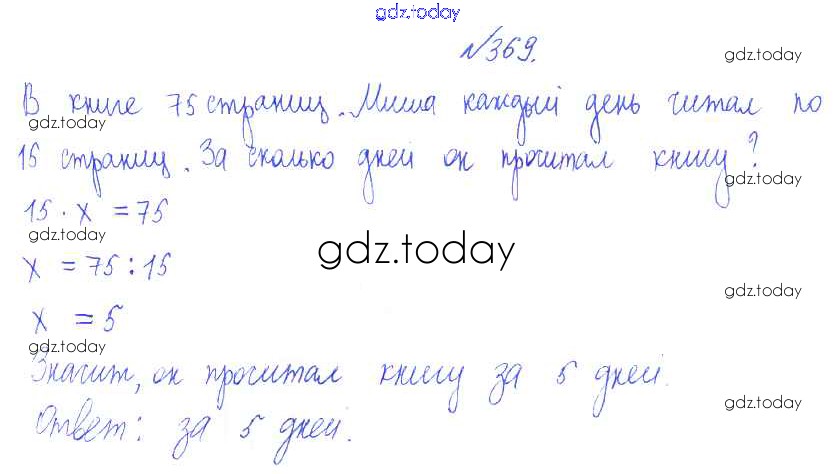 gdz.today
№369.
gdz.today
В книге 75 страниц. Миша каждый день читал по
gdz.today
15 страниц. За сколько дней он прочитал книгу?
gdz.today
15 · x = 75
gdz.today
gdz.today
x = 75 : 15
gdz.today
x = 5
gdz.today
Значит, он прочитал книгу за 5 дней.
gdz.today
Ответ: за 5 дней.